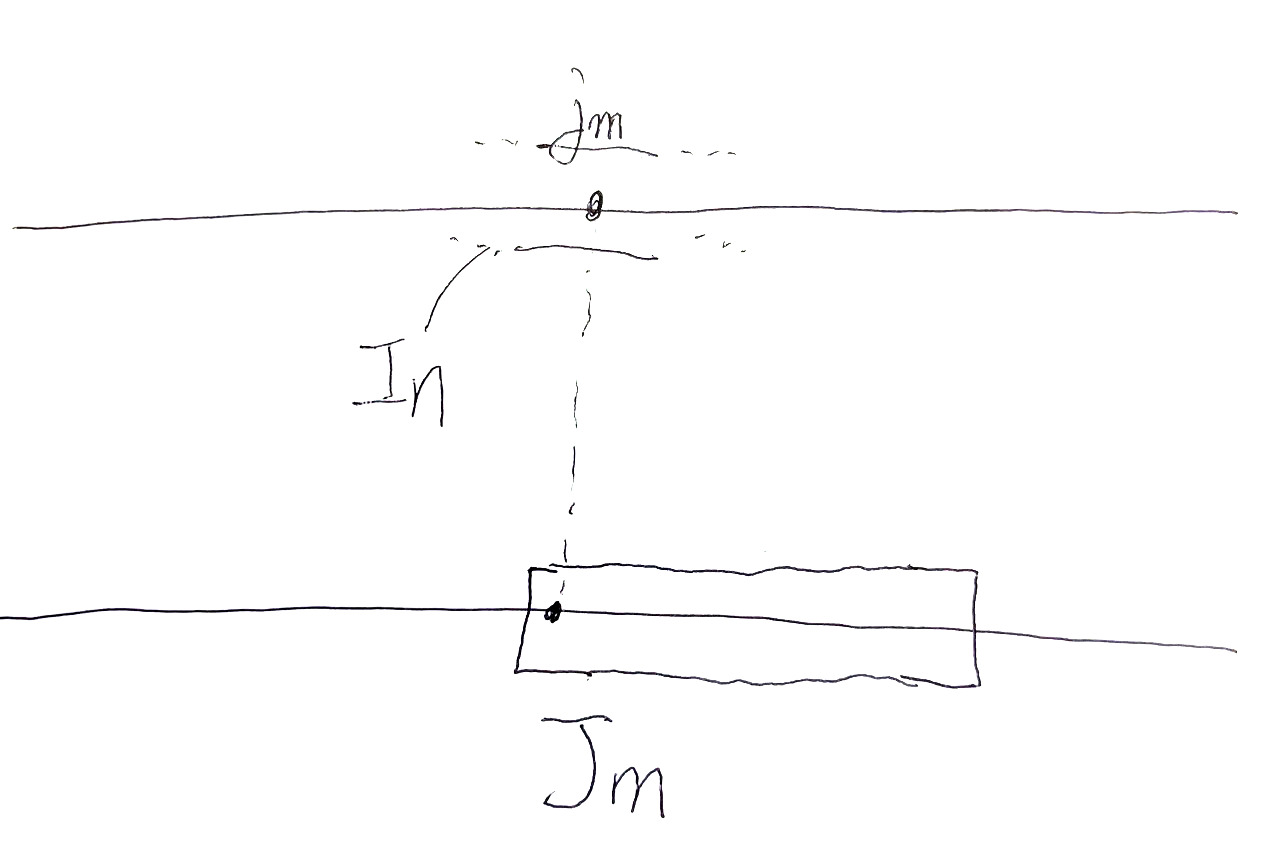 jm
In
Jm